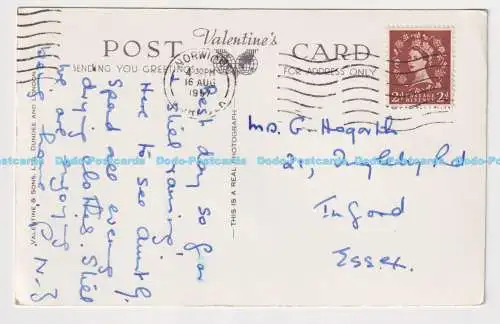 POST CARD
Valentine's
SENDING YOU GREETINGS
FOR ADDRESS ONLY
NORWICH
4.30PM
16 AUG
1957
NORFOLK
POSTAGE REVENUE
2d 2d
VALENTINE & SONS, LTD., DUNDEE AND LONDON
— THIS IS A REAL PHOTOGRAPH —
Best day so far
& still raining!
Have to see Auntly.
Spend all evening
drying clothes. Still
we are enjoying
being here. N. J
Mrs G. Hogarth
21, Ingleby Rd
Ilford
Essex.
Dodo-Postcards Dodo-Postcards Dodo-Postcards Dodo-Postcards Dodo-Postcards